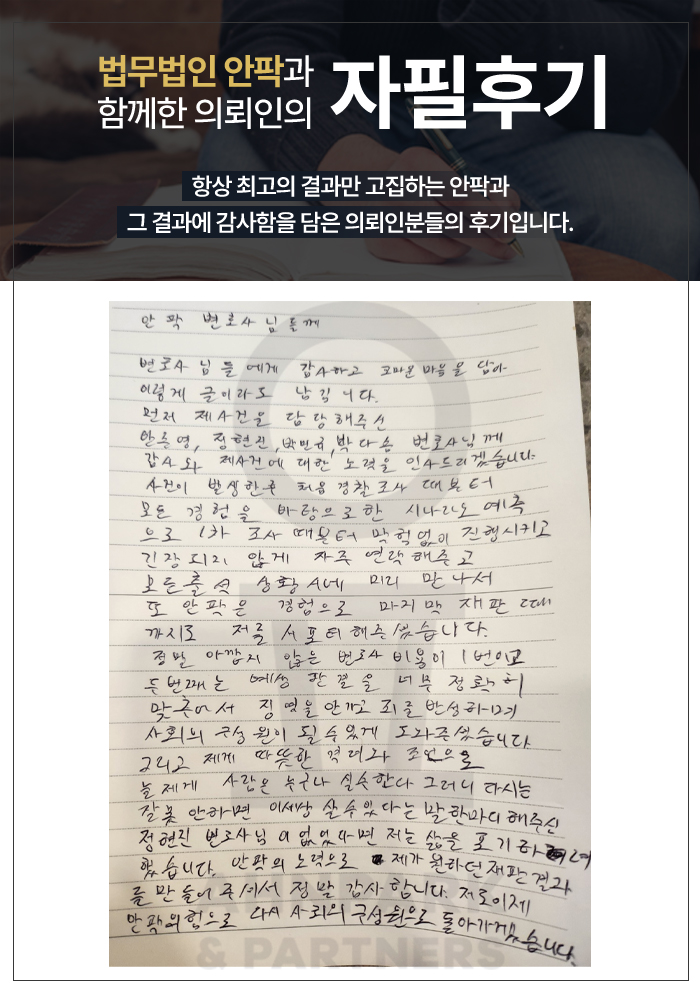 법무법인 안팍과
함께한 의뢰인의
자필후기
항상 최고의 결과만 고집하는 안팍과
그 결과에 감사함을 담은 의뢰인분들의 후기입니다.
안팍 변호사님들께
변호사님들에게 감사하고 고마운 마음을 담아
이렇게 글이라도 남깁니다.
먼저 제사건을 담당해주신
안주영, 정현진, 박민규, 박다솜 변호사님께
감사와 제사건에 대한 노력을 인사드리겠습니다.
사건이 발생한후 처음 경찰조사 때부터
모든 경험을 바탕으로한 시나리오 예측
으로 1차 조사때부터 막힘없이 진행시키고
긴장되지 않게 자주 연락해주고
모든출석 상황시에 미리 만나서
또 안팍은 경험으로 마지막 재판때
까지도 저를 서포터해주셨습니다.
정말 아깝지 않은 변호사 비용이 1번이고
두번째는 예상 판결을 너무 정확히
맞추어서 징역을 안가고 죄를 반성하며
사회의 구성원이 될수있게 도와주셨습니다
그리고 제게 따뜻한 격려와 조언으로
늘 제게 사람은 누구나 실수한다 그러니 다시는
잘못 안하면 이세상 살수있다는 말한마디 해주신
정현진 변호사님이 없었다면 저는 삶을 포기하려
했습니다. 안팍의 노력으로 제가 원하던 재판결과
를 만들어 주셔서 정말 감사합니다. 저도이제
안팍의힘으로 다시 사회의 구성원으로 돌아가겠습니다.
& PARTNERS